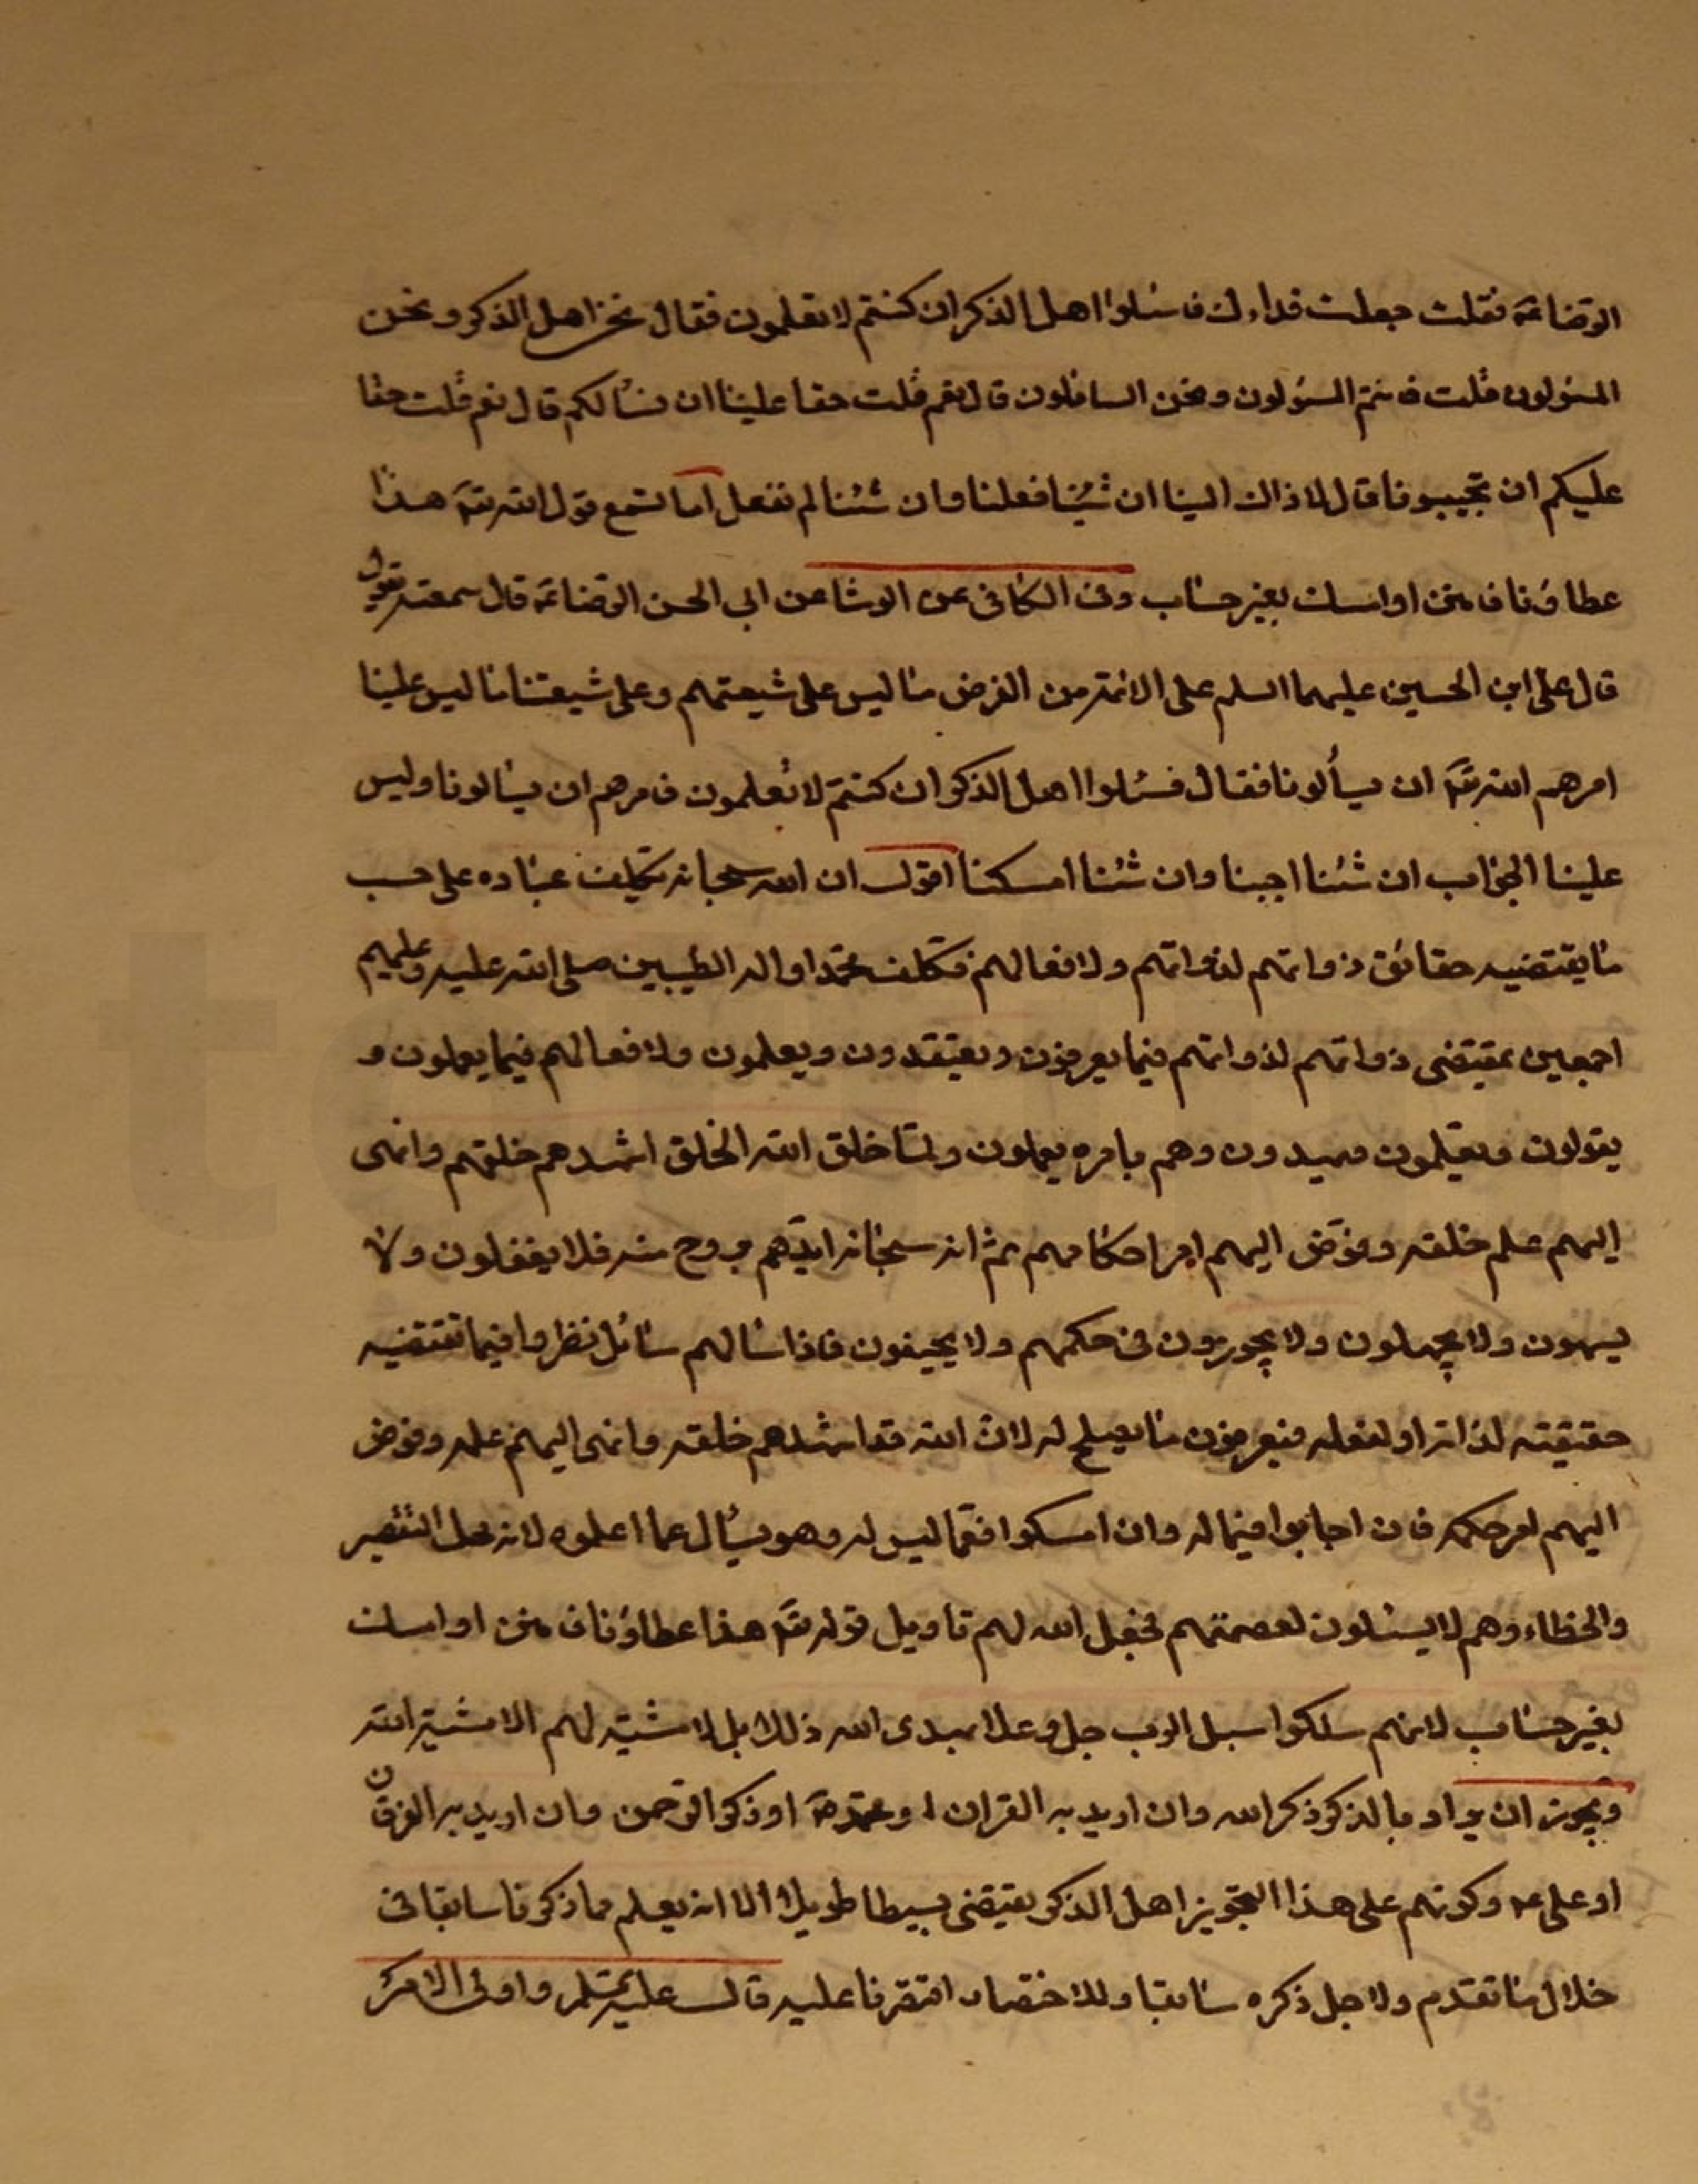 الرضا عم فقلت جعلت فداءك فاسئلوا اهل الذكر ان كنتم لا تعلمون فقال نحن اهل الذكر و نحن
المسؤلون قلت فانتم المسؤلون ونحن السائلون قال نعم قلت حقا علينا ان نسألكم قال نعم قلت حقا
عليكم ان تجيبونا قال لا ذاك الينا ان شئنا فعلنا وان شئنا لم نفعل اما تسمع قول الله تعم هذا
عطاؤنا فامنن او امسك بغير حساب وفى الكافى عن الوشا عن ابى الحسن الرضا عم قال سمعته يقول
قال على ابن الحسين عليهما السلم على الائمة من الفرض ما ليس على شيعتهم وعلى شيعتنا ما ليس علينا
امرهم الله تعم ان يسألونا فقال فسئلوا اهل الذكر ان كنتم لا تعلمون فامرهم ان يسألونا وليس
علينا الجواب ان شئنا اجبنا وان شئنا امسكنا اقول ان الله سبحانه تكليف عباده على حسب
ما يقتضيه حقائق ذواتهم لذواتهم ولافعالهم فكلف محمدا واله الطيبين صلى الله عليه وعليهم
اجمعين بمقتضى ذواتهم لذواتهم فيما يعرفون ويعتقدون ويعلمون ولافعالهم فيما يعملون و
يقولون ويعلمون وهم بامره يعملون ولما خلق الله الخلق اشهدهم خلقهم وانهى
اليهم علم خلقه وفوض اليهم امر احكامهم ثم انه سبحانه ايدهم بروح منه فلا يغفلون ولا
يسهون ولا يجهلون ولا يجورون فى حكمهم ولا يحيفون فاذا سالهم سائل نظروا فيما تقتضيه
حقيقته لذاته او لفعله فيعرفون ما يصلح له لان الله قد اشهدهم خلقه وانهى اليهم علمه وفوض
اليهم امر حكمه فان اجابوا فيما له وان امسكوا فمما ليس له وهو يسأل عما اعلموه لانه محل التقصير
والخطاء وهم لا يسئلون لعصمتهم فجعل الله لهم تاويل قوله تعم هذا عطاؤنا فامنن او امسك
بغير حساب لانهم سلكوا سبل الرب جل وعلا بهدى الله ذلك بل لا مشية لهم الا مشية الله
ويجوز ان يراد بالذكر ذكر الله وان اريد به القران او محمد ص او ذكر الرحمن وان اريد به الفرقان
او على عم وكونهم على هذا التجويز اهل الذكر يقتضى بسيطا طويلا الا انه يعلم مما ذكرنا سابقا فى
خلال ما تقدم ولاجل ذكره سابقا وللاختصار اقتصرنا عليه قال عليه السلم واولى الامر